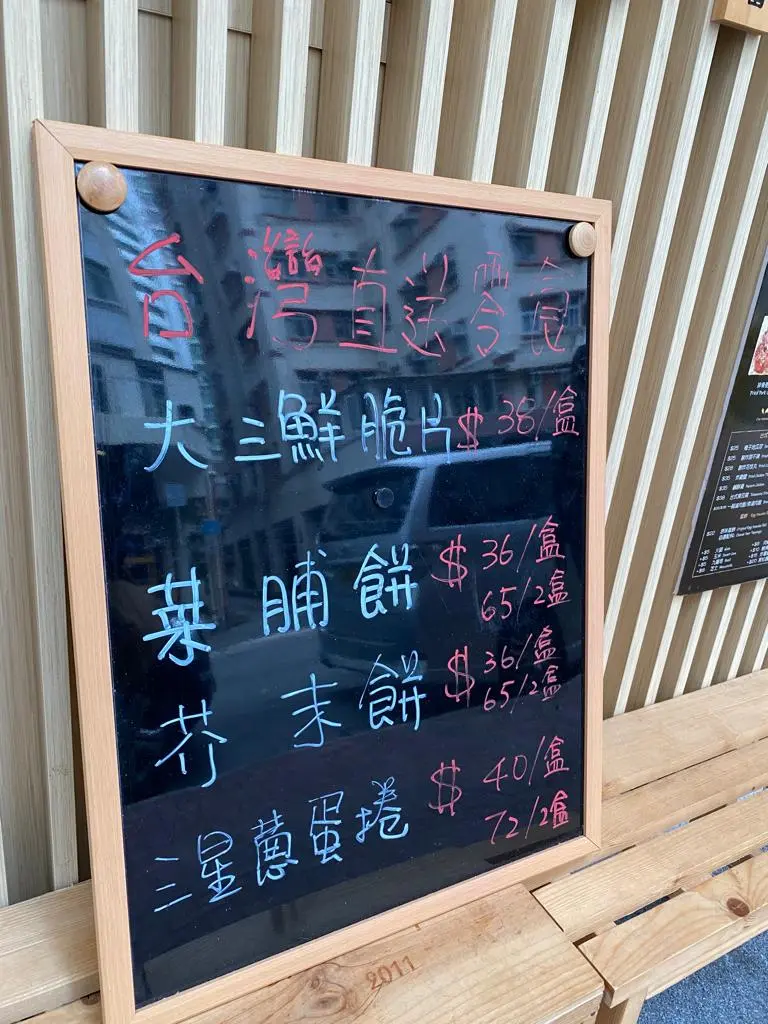 台灣直送零食
大三鮮脆片 $38/盒
菜脯餅 $36/盒
65/2盒
芥末餅 $36/盒
65/2盒
三星蔥蛋捲 $40/盒
72/2盒
2011